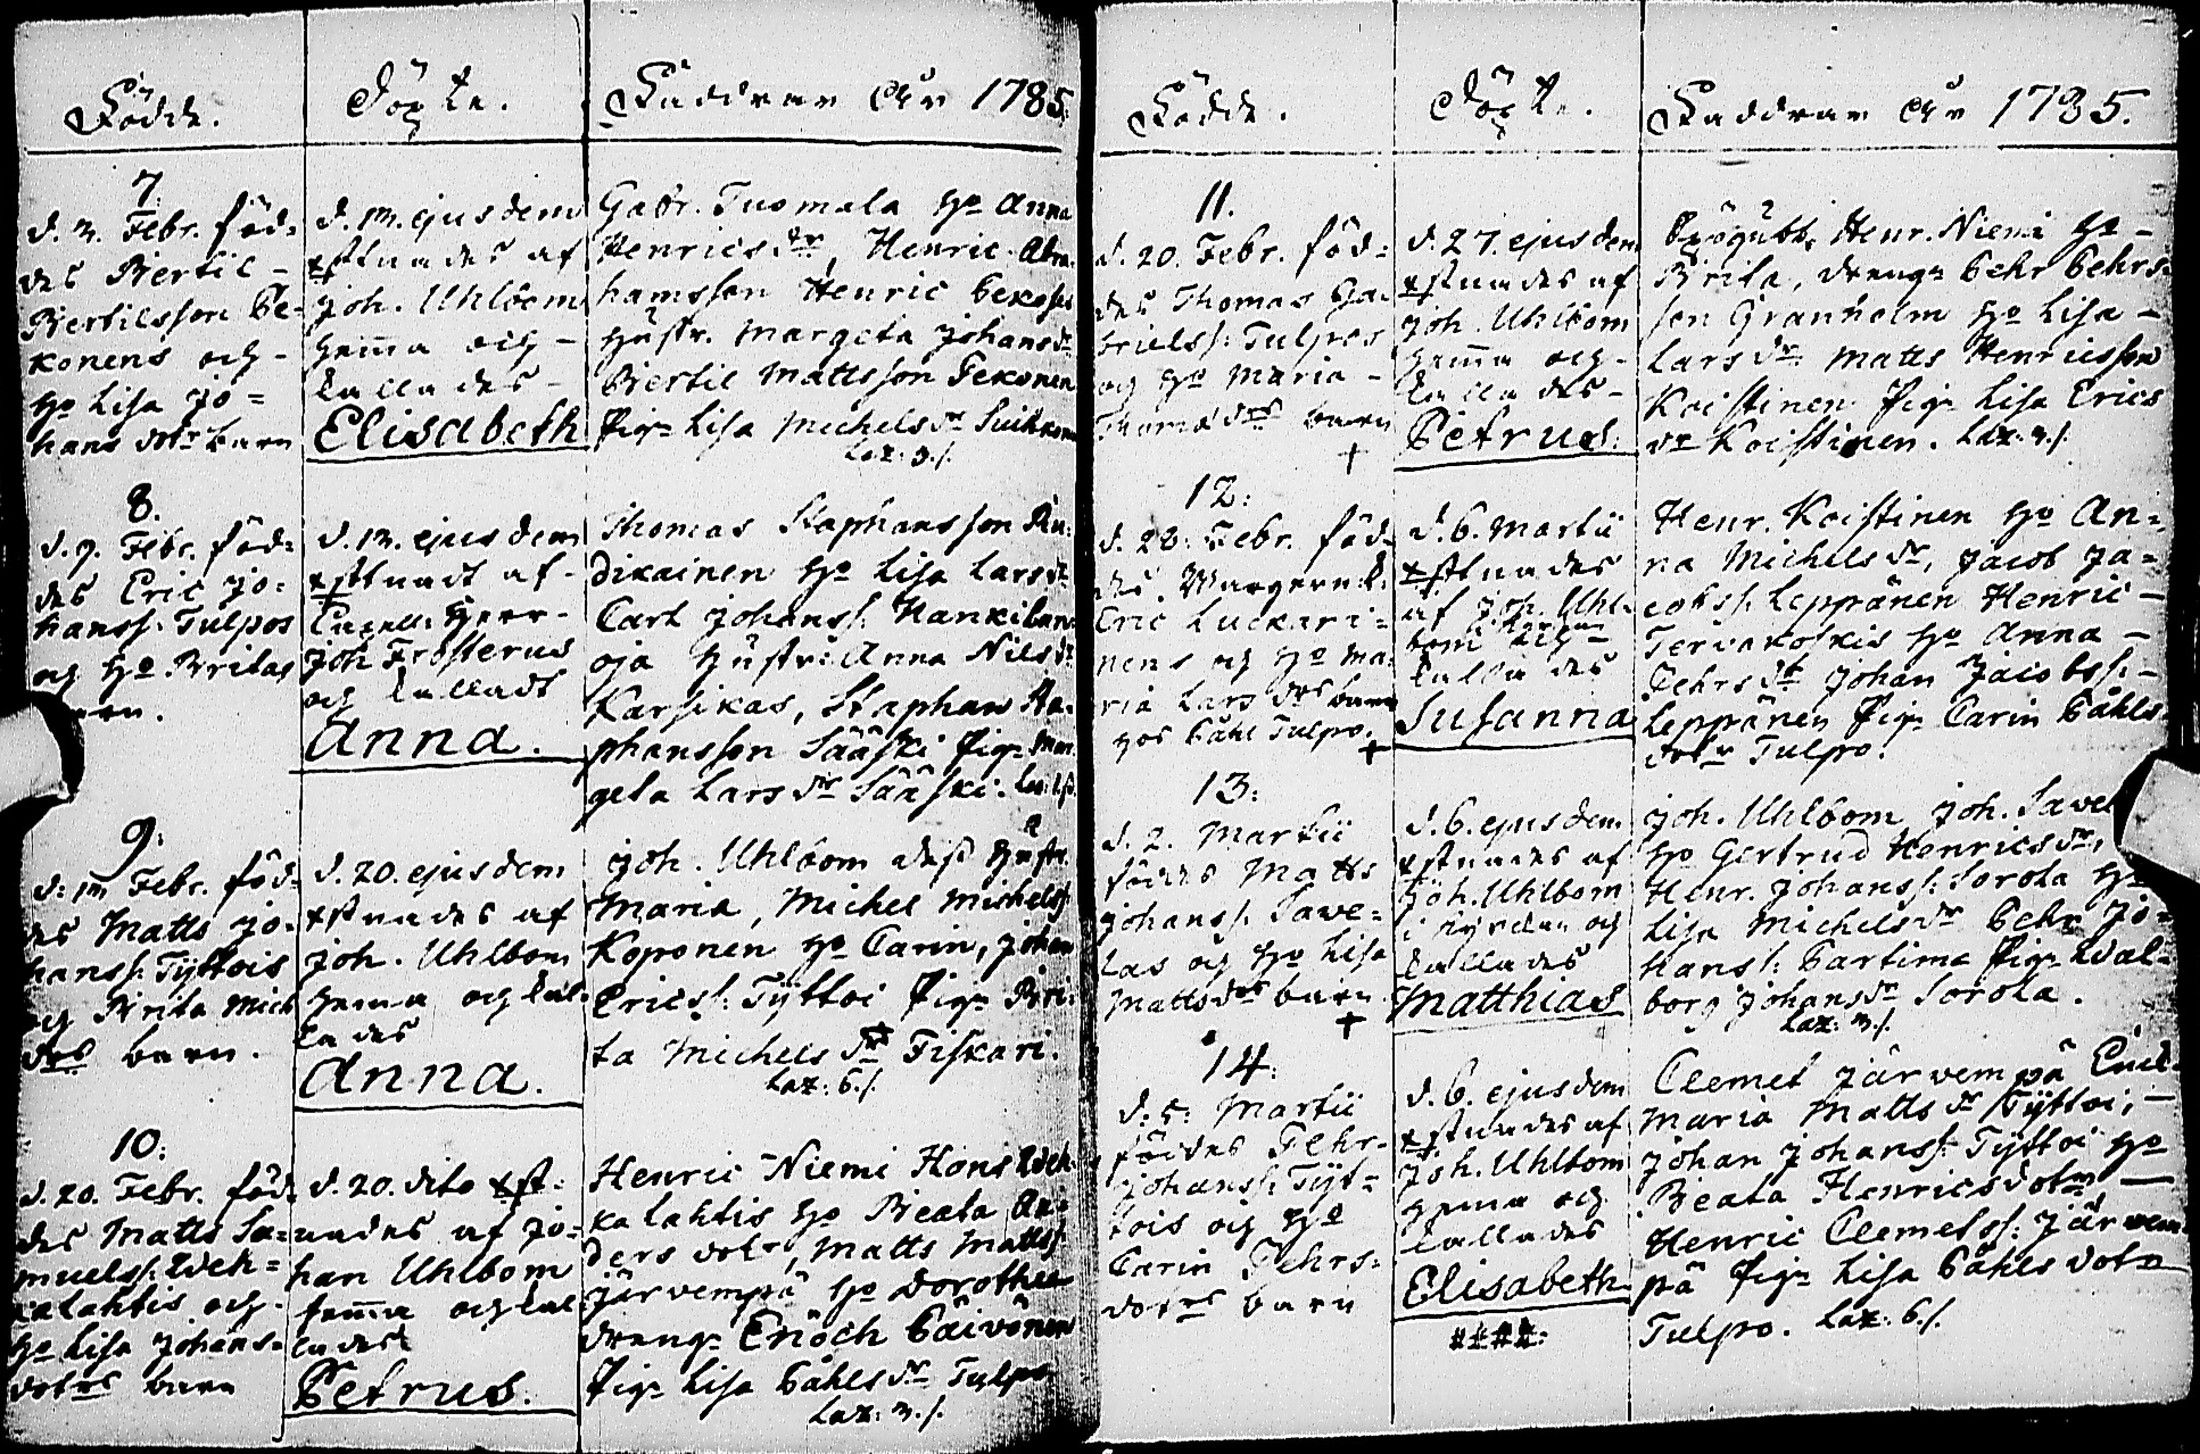 Födde.
Döpte.
Faddrar År 1785.
7.
d. 3. Febr. föd=
des Bertil -
Bertilsson Pe-
konens och -
Ho Lisa Jo=
hans dotrs barn
d. 13. ejusdem
xstnades af
Joh. Uhlbom
hema och -
kallades -
Elisabeth
Gabr. Tuomala Ho Anna
Henricsdr, Henric Abra-
hamsson Henric Pekoses
Hustr. Margeta Johansdr
Bertil Mattsson Pekonen
Pig. Lisa Michelsdr
Laz: 3./.
8.
d. 9. Febr. föd=
des Eric Jo-
hanss. Tulpos
och Ho Britas
barn.
d. 13. ejusdem
xstnadt af -
Capell: Herr -
Joh Frosterus
och kalladt
Anna.
Thomas Staphansson Pu=
dikainen Ho Lisa Larsdr
Carl Johanss. Hankilan=
oja Hustr: Anna Nilsdr
Karsikas, Staphan Sta=
phansson Sääski Pig. Mar
geta Larsdr Sääski.
9.
d: 13 Febr. föd=
des Matts Jo-
hanss. Tyttois
och Brita Mich
drs barn.
d. 20. ejusdem
xstnades af
Joh. Uhlbom
hema och kal=
lades
Anna.
Joh. Uhlbom dess Hustr
Maria, Michel Michelss
Koponen Ho Carin, Johan
Ericss. Tyttoi Pig. Bri=
ta Michelsdr Fiskari.
Laz: 6./.
10.
d. 20. Febr. föd
des Matts Sa=
muelss. Weh=
kalahtis och
Ho Lisa Johans=
dotrs barn
d. 20. dito xst=
nades af Jo=
han Uhlbom
hema och kal
lades
Petrus.
Henric Niemi Hans Weh=
kalahtis Ho Beata An=
ders dotr, Matts Mattss
Järvempä Ho Dorothea
dreng. Enoch Päivänen
Pig. Lisa Påhlsdr Tulpo
Laz: 3./.
Födde.
Döpte.
Faddrar År 1785.
11.
d. 20. Febr. föd=
des Thomas Ga-
brielss: Tulpos
och Ho Maria -
Thomædrs barn
+
d. 27. ejusdem
xstnades af
Joh. Uhlbom
hema och -
kallades -
Petrus.
Henr. Niemi Ho -
Brita, dreng. Pehr Pehrs=
son Granholm Ho Lisa -
Larsdr Matts Henricsson
Koistinen Pig. Lisa Erics
dr Koistinen. Laz: 3./.
12:
d. 28. Febr. föd=
des
Eric Luckari=
nens och Ho Ma=
ria Larsdrs barn
hos Påhl Tulpo.
+
d. 6. Martii
xstnades
af Joh. Uhl=
bom och
kallades
Susanna
Henr. Koistinen Ho An=
na Michelsdr, Jacob Ja=
cobss. Leppänen Henric -
Tervakoskis Ho Anna -
Pehrsdr Johan Jacobss: -
Leppänen Pig. Carin Påhls
dotr Tulpo.
13:
d. 2. Martii
föddes Matts
Johanss. Sawe=
las och Ho Lisa
Mattsdrs barn
+
d. 6. ejusdem
xstnades af
Joh. Uhlbom
i kyrckan och
kallades
Matthias
Joh. Uhlbom Joh. Sawel
Ho Gertrud Henricsdr,
Henr. Johanss: Sorola Ho
Lisa Michelsdr Pehr Jo=
hanss: Partima Pig. Wal=
borg Johansdr Sorola.
Laz: 3./.
14:
d: 5: Martii
föddes Pehr
Johanss: Tyt=
tois och Ho
Carin Pehrs=
dotrs barn
d. 6. ejusdem
xstnades af
Joh. Uhlbom
hema och
kallades
Elisabeth.
Clemet Järvempä Enk.
Maria Mattsdr Tyttoi, -
Johan Johanss: Tyttoi Ho
Beata Henricsdotr -
Henric Clemetss: Järvem=
pä Pig. Lisa Påhlsdotr
Tulpo. Laz: 6./.